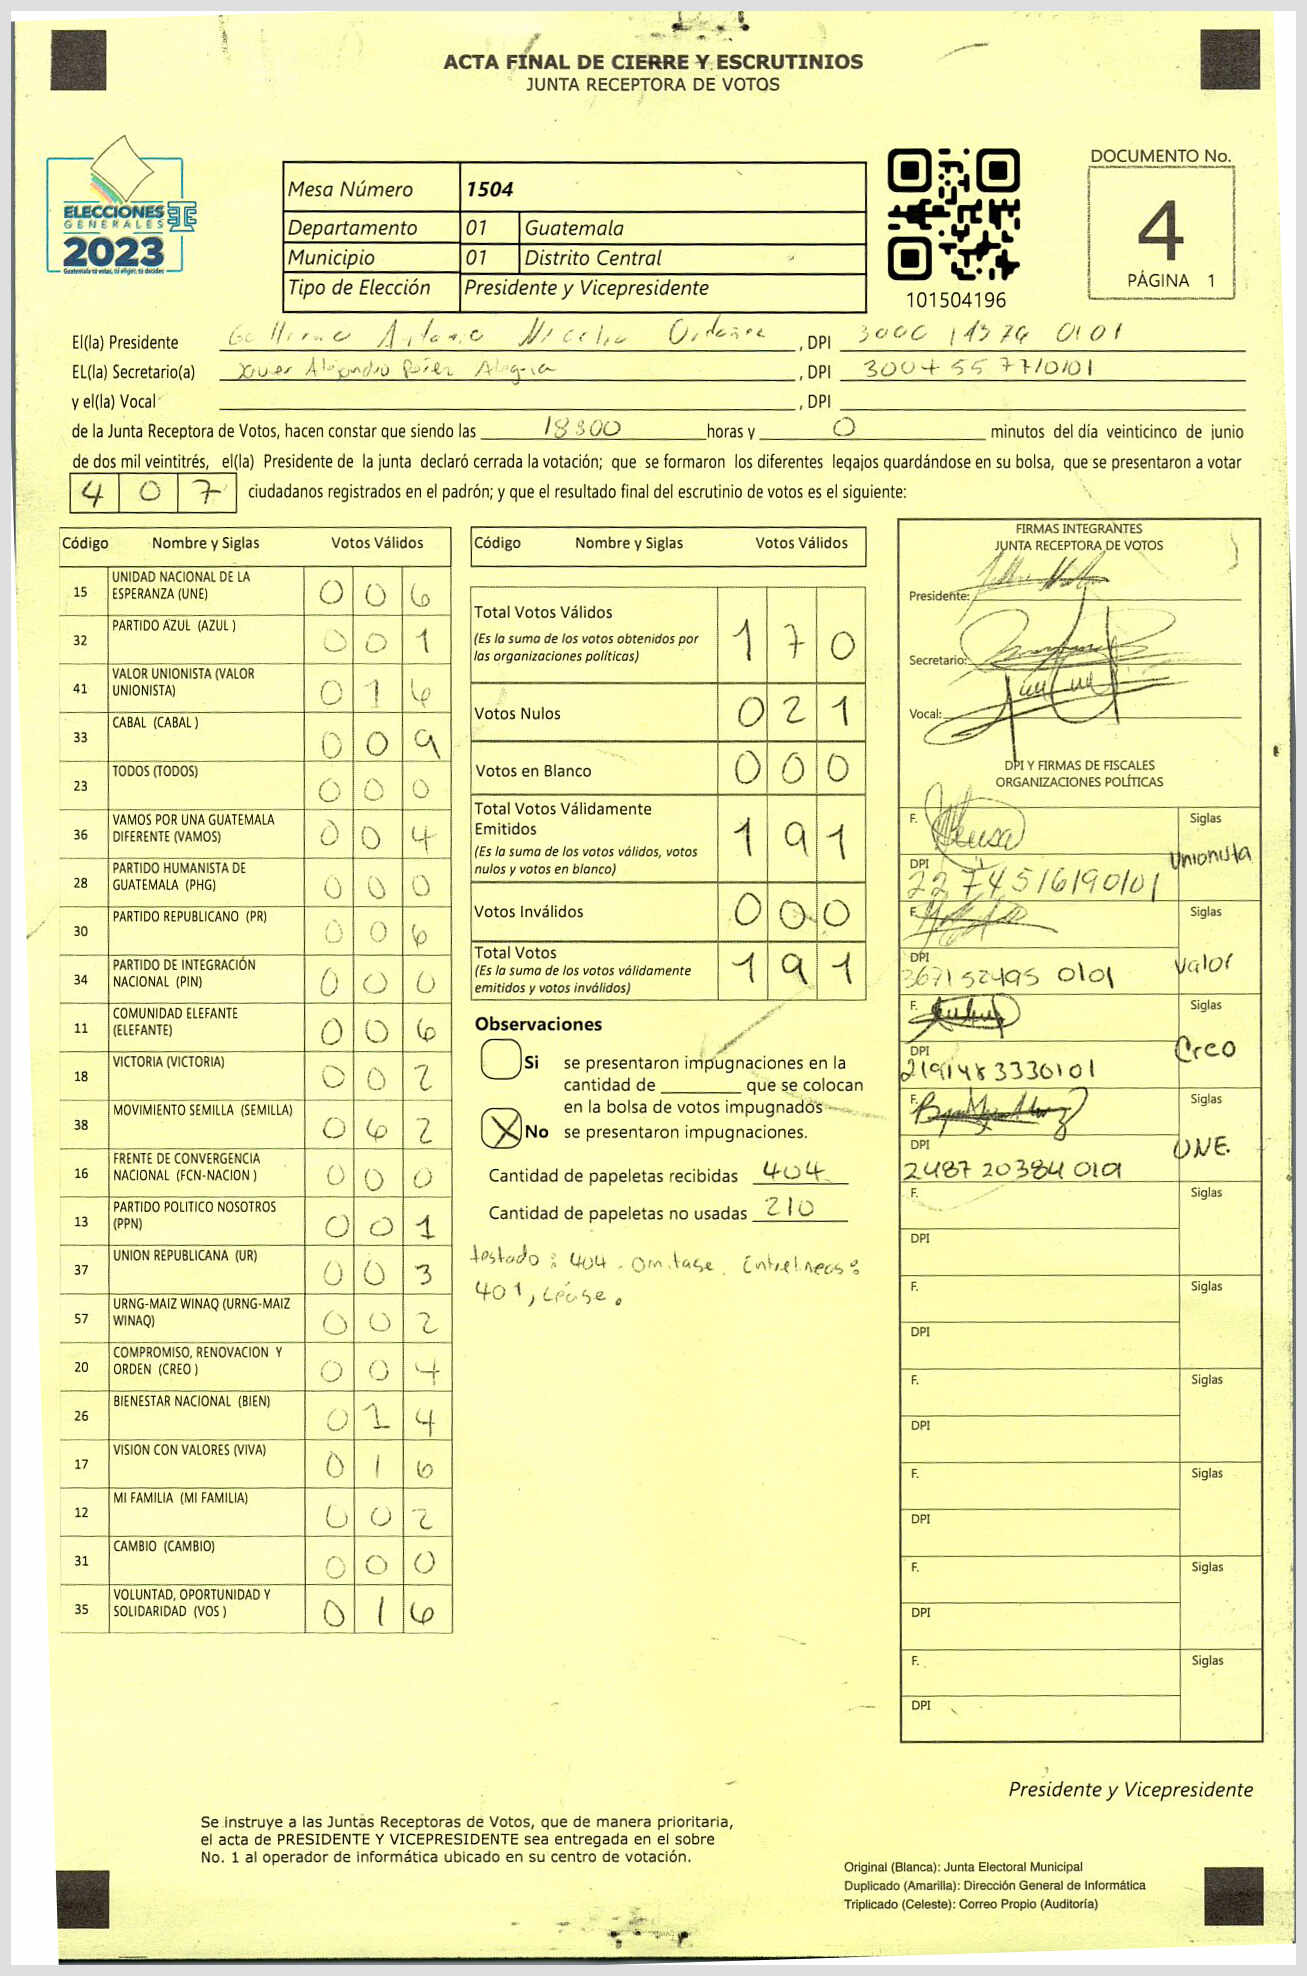 ACTA FINAL DE CIERRE Y ESCRUTINIOS
JUNTA RECEPTORA DE VOTOS
ELECCIONES
GENERALES
2023
Guatemala tú votas, tú eliges, tú decides
Mesa Número 1504
Departamento 01 Guatemala
Municipio 01 Distrito Central
Tipo de Elección Presidente y Vicepresidente
101504196
DOCUMENTO No.
4
PÁGINA 1
El(la) Presidente Antonio , DPI 0101
EL(la) Secretario(a) Xavier Alejandro Pérez Alegria , DPI 3004557710101
y el(la) Vocal , DPI
de la Junta Receptora de Votos, hacen constar que siendo las 18:00 horas y 0 minutos del día veinticinco de junio
de dos mil veintitrés, el(la) Presidente de la junta declaró cerrada la votación; que se formaron los diferentes legajos guardándose en su bolsa, que se presentaron a votar
407 ciudadanos registrados en el padrón; y que el resultado final del escrutinio de votos es el siguiente:
Código Nombre y Siglas Votos Válidos
15 UNIDAD NACIONAL DE LA ESPERANZA (UNE) 0 0 6
32 PARTIDO AZUL (AZUL ) 0 0 1
41 VALOR UNIONISTA (VALOR UNIONISTA) 0 1 6
33 CABAL (CABAL ) 0 0 9
23 TODOS (TODOS) 0 0 0
36 VAMOS POR UNA GUATEMALA DIFERENTE (VAMOS) 0 0 4
28 PARTIDO HUMANISTA DE GUATEMALA (PHG) 0 0 0
30 PARTIDO REPUBLICANO (PR) 0 0 6
34 PARTIDO DE INTEGRACIÓN NACIONAL (PIN) 0 0 0
11 COMUNIDAD ELEFANTE (ELEFANTE) 0 0 6
18 VICTORIA (VICTORIA) 0 0 2
38 MOVIMIENTO SEMILLA (SEMILLA) 0 6 2
16 FRENTE DE CONVERGENCIA NACIONAL (FCN-NACION ) 0 0 0
13 PARTIDO POLITICO NOSOTROS (PPN) 0 0 1
37 UNION REPUBLICANA (UR) 0 0 3
57 URNG-MAIZ WINAQ (URNG-MAIZ WINAQ) 0 0 2
20 COMPROMISO, RENOVACION Y ORDEN (CREO ) 0 0 4
26 BIENESTAR NACIONAL (BIEN) 0 1 4
17 VISION CON VALORES (VIVA) 0 1 6
12 MI FAMILIA (MI FAMILIA) 0 0 2
31 CAMBIO (CAMBIO) 0 0 0
35 VOLUNTAD, OPORTUNIDAD Y SOLIDARIDAD (VOS ) 0 1 6
Código Nombre y Siglas Votos Válidos
Total Votos Válidos 1 7 0
(Es la suma de los votos obtenidos por
las organizaciones políticas)
Votos Nulos 0 2 1
Votos en Blanco 0 0 0
Total Votos Válidamente
Emitidos 1 9 1
(Es la suma de los votos válidos, votos
nulos y votos en blanco)
Votos Inválidos 0 0 0
Total Votos 1 9 1
(Es la suma de los votos válidamente
emitidos y votos inválidos)
Observaciones
Si se presentaron impugnaciones en la
cantidad de ________ que se colocan
en la bolsa de votos impugnados
X No se presentaron impugnaciones.
Cantidad de papeletas recibidas 404
Cantidad de papeletas no usadas 210
testado: 404. Omitase. Entrelineas:
401, Léase.
FIRMAS INTEGRANTES
JUNTA RECEPTORA DE VOTOS
Presidente:
Secretario:
Vocal:
DPI Y FIRMAS DE FISCALES
ORGANIZACIONES POLÍTICAS
F. Siglas
Unionista
DPI
2274516190101
F. Siglas
Valor
DPI
367152495 0101
F. Siglas
Creo
DPI
2191483330101
F. Siglas
UNE.
DPI
2487 20384 0101
F. Siglas
DPI
F. Siglas
DPI
F. Siglas
DPI
F. Siglas
DPI
F. Siglas
DPI
F. Siglas
DPI
Presidente y Vicepresidente
Se instruye a las Juntas Receptoras de Votos, que de manera prioritaria,
el acta de PRESIDENTE Y VICEPRESIDENTE sea entregada en el sobre
No. 1 al operador de informática ubicado en su centro de votación.
Original (Blanca): Junta Electoral Municipal
Duplicado (Amarilla): Dirección General de Informática
Triplicado (Celeste): Correo Propio (Auditoría)